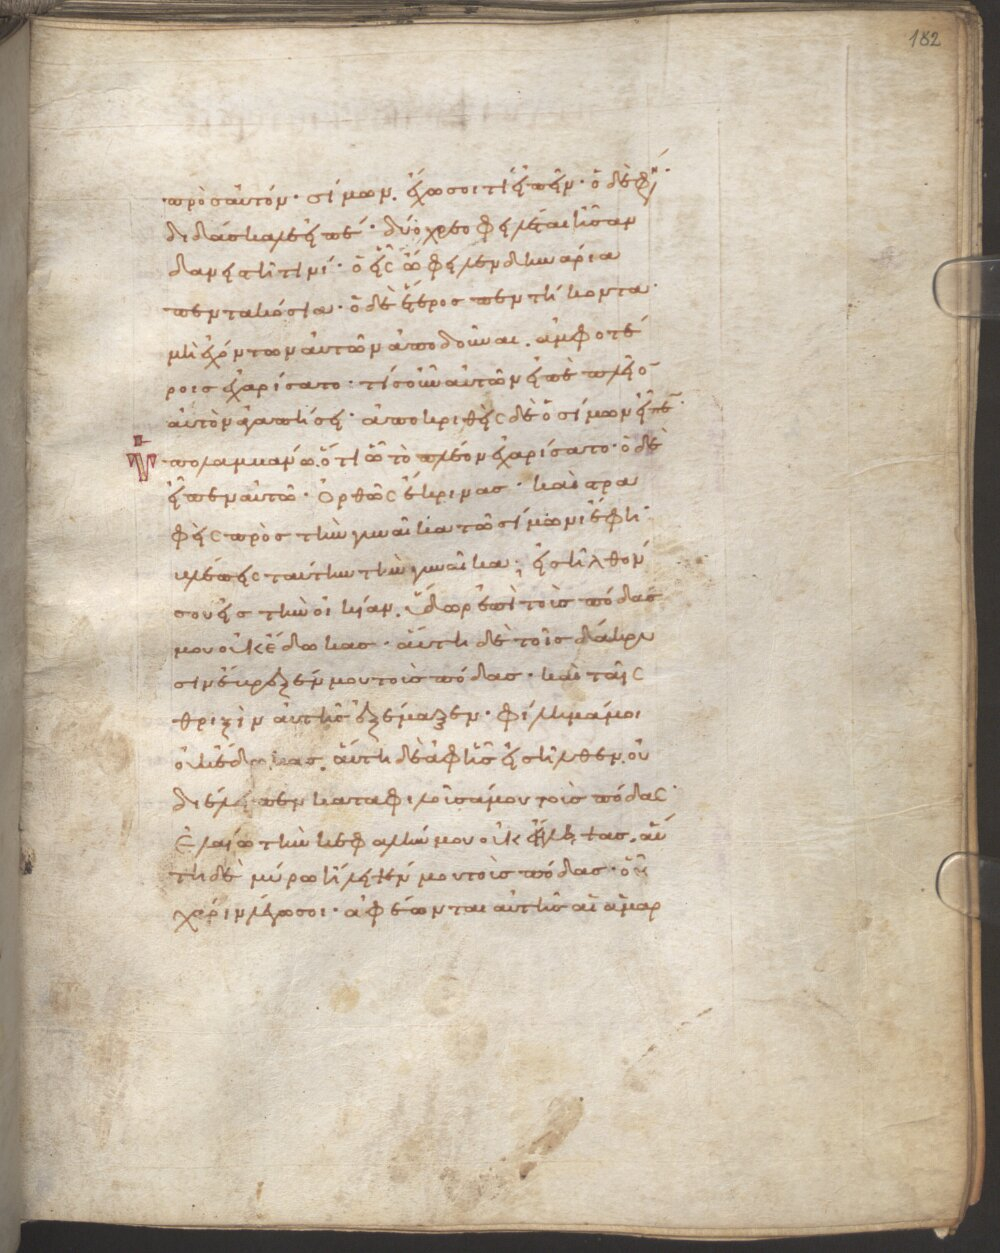 182
πρὸς αὐτόν· σίμων. ἔχω σοι τί εἰπεῖν· ὁ δὲ φη̣ϊ·
διδάσκαλε εἰπέ· δύο χρεοφειλέται ἦσαν
δανειστῆ τινί· ὁ εἷς ὤφειλεν δηνάρια
πεντακόσια· ὁ δὲ ἕτερος πεντήκοντα·
μὴ ἐχόντων αὐτῶν ἀποδοῦναι. ἀμφοτέ
ροις ἐχαρίσατο· τίς οὖν αὐτῶν εἰπὲ πλεῖο̄
αὐτὸν ἀγαπήσει· ἀποκριθεὶς δὲ ὁ σίμων εἶπε̄·
Ὑπολαμβάνω. ὅτι ὧ τὸ πλέον ἐχαρίσατο· ὁ δὲ
εἶπεν αὐτῶ· Ὀρθῶς ἔκρινας· καὶ στρα
φεὶς πρὸς τὴν γυναῖκα τῶ σίμωνι ἔφη·
βλέπεις ταύτην τὴν γυναῖκα; εἰσῆλθόν
σου εἰς τὴν οἰκίαν. ὕδωρ ἐπὶ τοὺς πόδας
μου οὐκ ἔδωκας· αὕτη δὲ τοῖς δάκρυ
σιν ἔβρεξέν μου τοὺς πόδας· καὶ ταῖς
θριξὶν αὐτῆς ἐξέμαξεν· φίλημά μοι
οὐκ ἔδωκας. αὕτη δὲ ἀφ ἧς εἰσῆλθεν. οὐ
διέλειπεν καταφιλοῦσά μου τοὺς πόδας·
Ἐλαίω τὴν κεφαλήν μου οὐκ ἤλειψας. αὕ
τη δὲ μύρω ἤλειψέν μου τοὺς πόδας· οὗ
χάριν λέγω σοι· ἀφέωνται αὐτῆς αἱ ἁμαρ